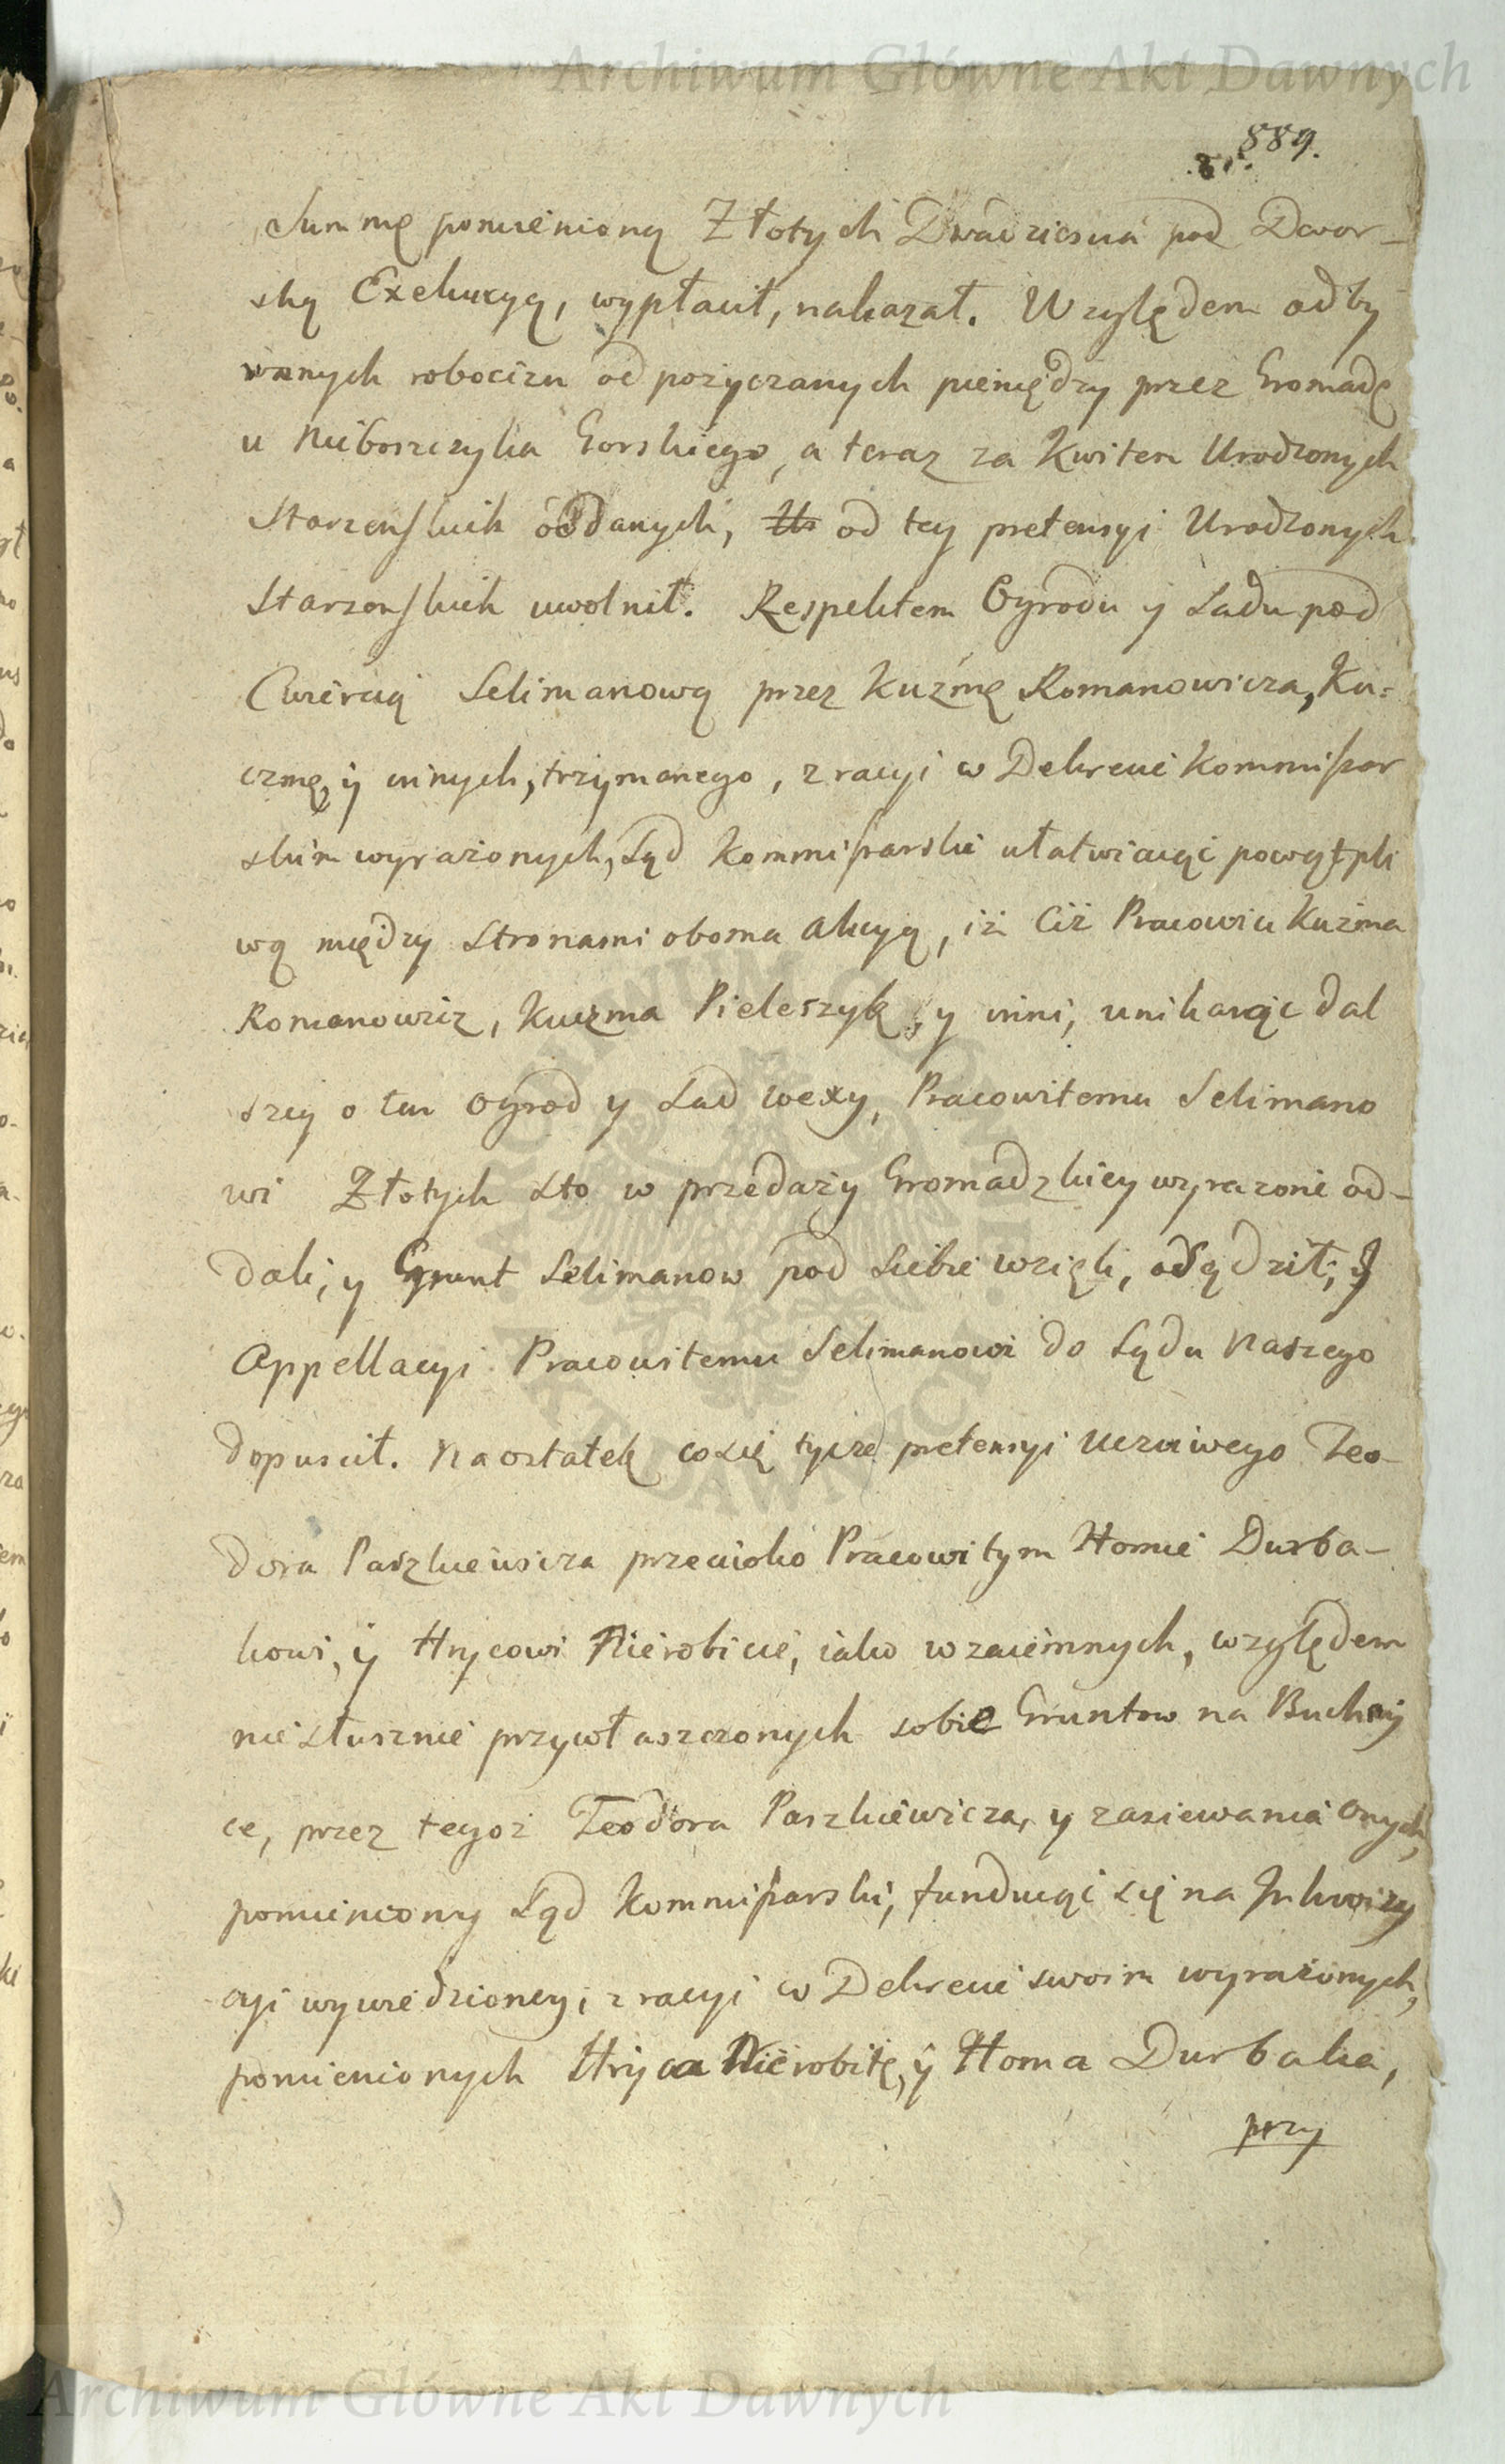 Archiwum Główne Akt Dawnych
889.
Summę pomienioną Złotych Dwadziescia pod Dwor-
ską Exekucyą, wypłacił, nakazał. Względem odby
wanych robocizn od pożyczanych pieniędzy przez Gromadę
u Nieboszczyka Gorskiego, a teraz za Kwitem Urodzonych
Starzenskich oddanych, od tey pretensyi Urodzonych
Starzenskich uwolnił. Respektem Ogrodu y Sadu pod
Cwiercią Selimanową przez Kuźmę Romanowicza, Ku=
czmę, y innych, trzymanego, z racyi w Dekrecie Kommissar
skim wyrażonych, Sąd Kommissarski ułatwiaiąc powątpli
wą między Stronami oboma Akcyą, iż Ciż Pracowici Kuźma
Romanowicz, Kuczma Pieleszyk, y inni, unikaiąc dal
szey o ten Ogrod y Sad wexy, Pracowitemu Selimano
wi Złotych sto w przedaży Gromadzkiey wyrazone od-
dali, y Grunt Selimanow pod siebie wzięli, osądził, y
Appellacyi Pracowitemu Selimanowi do Sądu Naszego
dopuscił. Naostatek co się tycze pretensyi Uczciwego Teo-
dora Paszkiewicza przeciwko Pracowitym Homie Durba-
kowi, y Hrycowi Nierobicie, iako wzaiemnych, względem
niesłusznie przywłaszczonych sobie Gruntow na Buchny
ce, przez tegoż Teodora Paszkiewicza, y zasiewania onych,
pomieniony Sąd Kommissarski, funduiąc się na Inkwizy
cyi wywiedzioney, z racyi w Dekrecie swoim wyrażonych,
pomienionych Hryca Nierobitę, y Homa Durbaka,
przy
Archiwum Główne Akt Dawnych